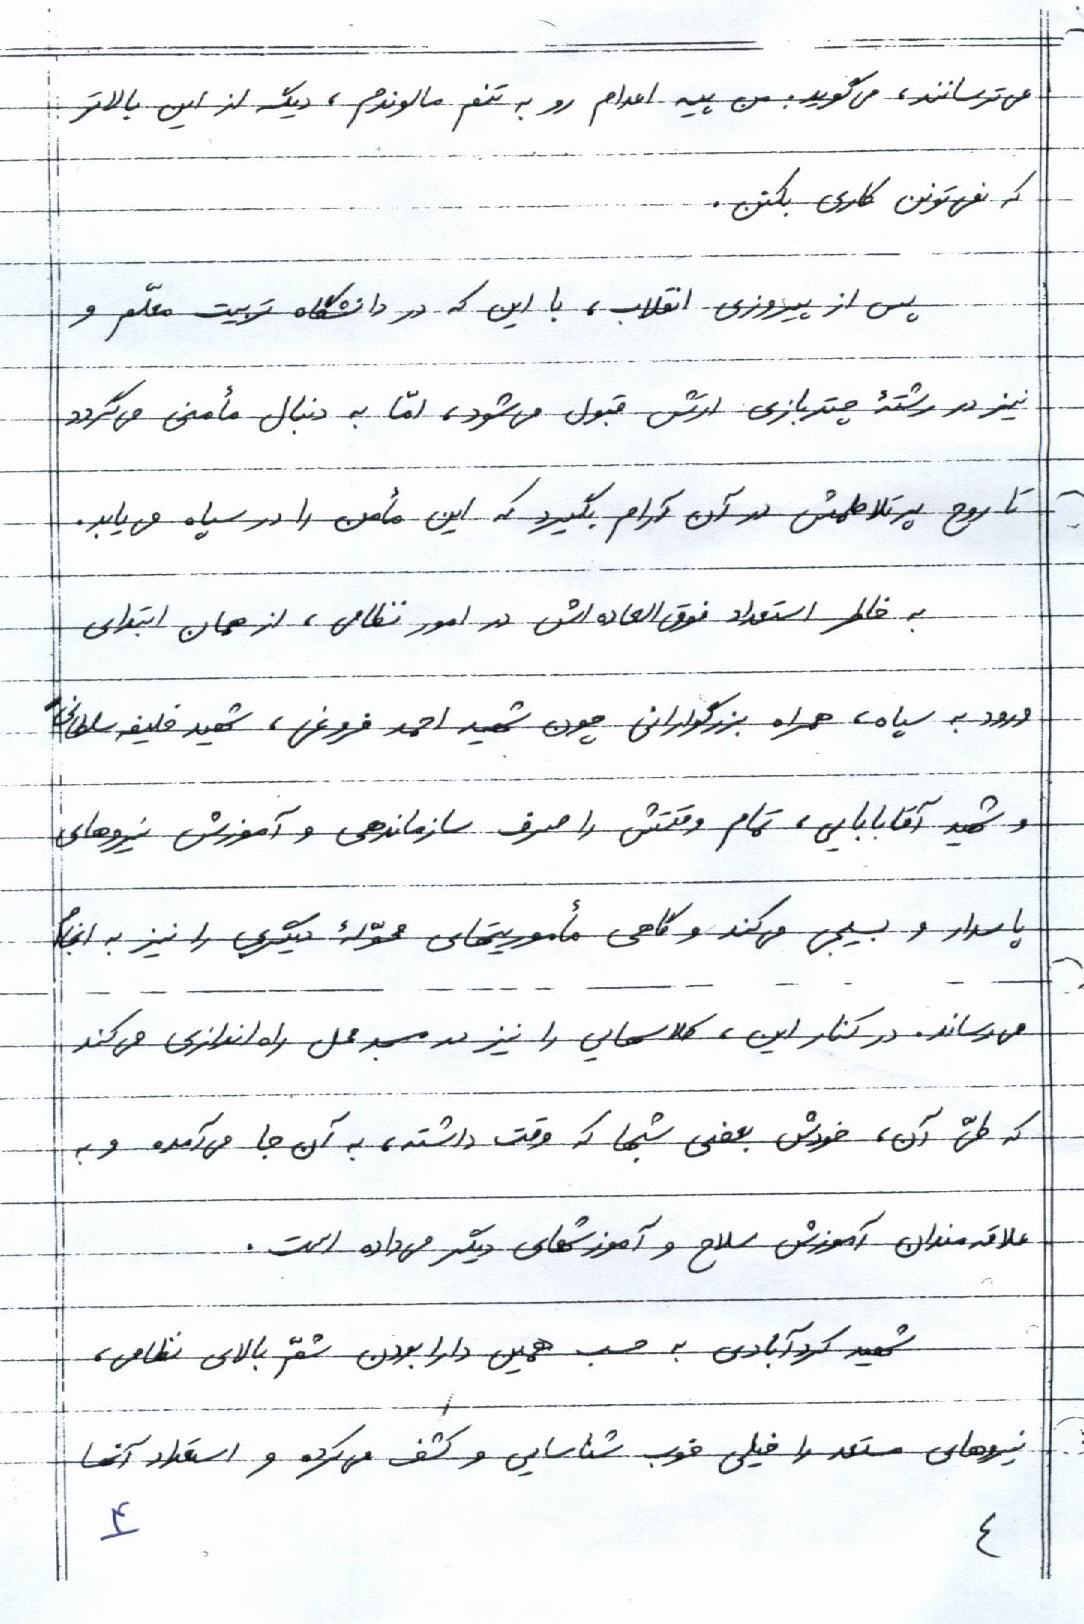 می‌ترسانند، می‌گوید: من پیه اعدام رو به تنم مالوندم، دیگه از این بالاتر
که نمی‌تونن کاری بکنن.
پس از پیروزی انقلاب، با این که در دانشگاه تربیت معلّم و
نیز در رشتهٔ چتربازی ارتش قبول می‌شود، امّا به دنبال مأمنی می‌گردد
تا روح پرتلاطمش در آن آرام بگیرد که این مأمن را در سپاه می‌یابد.
به خاطر استعداد فوق‌العاده‌اش در امور نظامی، از همان ابتدای
ورود به سپاه، همراه بزرگوارانی چون شهید احمد فروغی، شهید خلیفه سلطانی
و شهید آقابابایی، تمام وقتش را صرف سازماندهی و آموزش نیروهای
پاسدار و بسیجی می‌کند و گاهی مأموریتهای محوّلهٔ دیگری را نیز به انجام
می‌رساند. در کنار این، کلاسهایی را نیز در مسجد محل راه‌اندازی می‌کند
که طیّ آن، خودش بعضی شبها که وقت داشته، به آن جا می‌آمده و به
علاقه‌مندان آموزش سلاح و آموزشهای دیگر می‌داده است.
شهید کردآبادی به حسب همین دارا بودن شمّ بالای نظامی،
نیروهای مستعد را خیلی خوب شناسایی و کشف می‌کرده و استعداد آنها
٤
۴